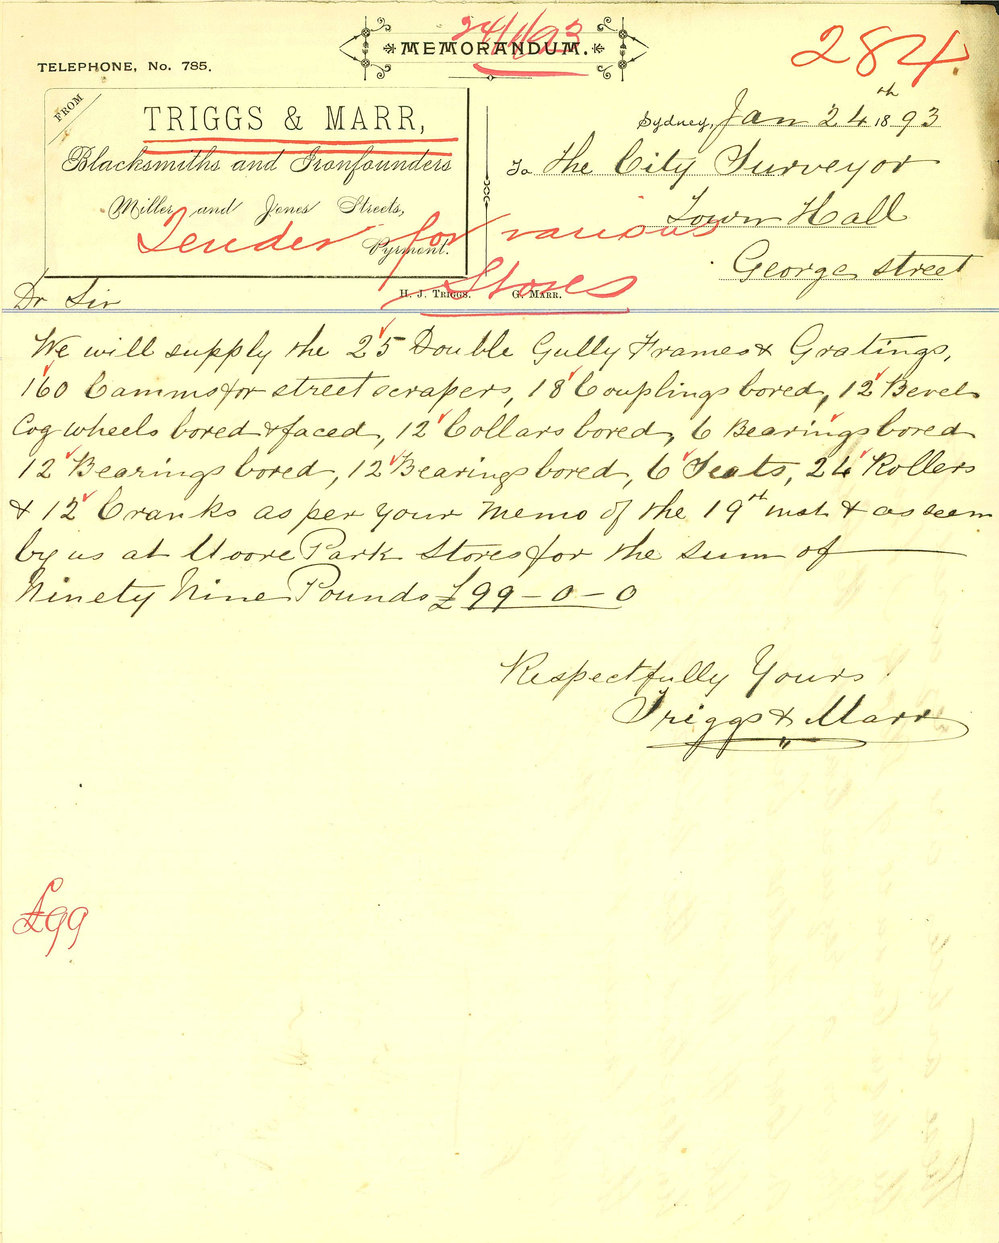 24/1/93
MEMORANDUM.
284
TELEPHONE, No. 785.
FROM
TRIGGS & MARR,
Blacksmiths and Ironfounders
Miller and Jones Streets,
Pyrmont.
H. J. Triggs. G. Marr.
Tender for various
Stores
Sydney, Jan 24th 1893
To The City Surveyor
Town Hall
George Street
Dr Sir
We will supply the 25 Double Gully Frames & Gratings,
160 Camms for street scrapers, 18 Couplings bored, 12 Bevel
Cog wheels bored & faced, 12 Collars bored, 6 Bearings bored
12 Bearings bored, 12 Bearings bored, 6 Seats, 24 Rollers
& 12 Cranks as per your Memo of the 19th inst & as seen
by us at Moore Park Stores for the sum of
Ninety Nine Pounds £99-0-0
Respectfully Yours
Triggs & Marr
£99